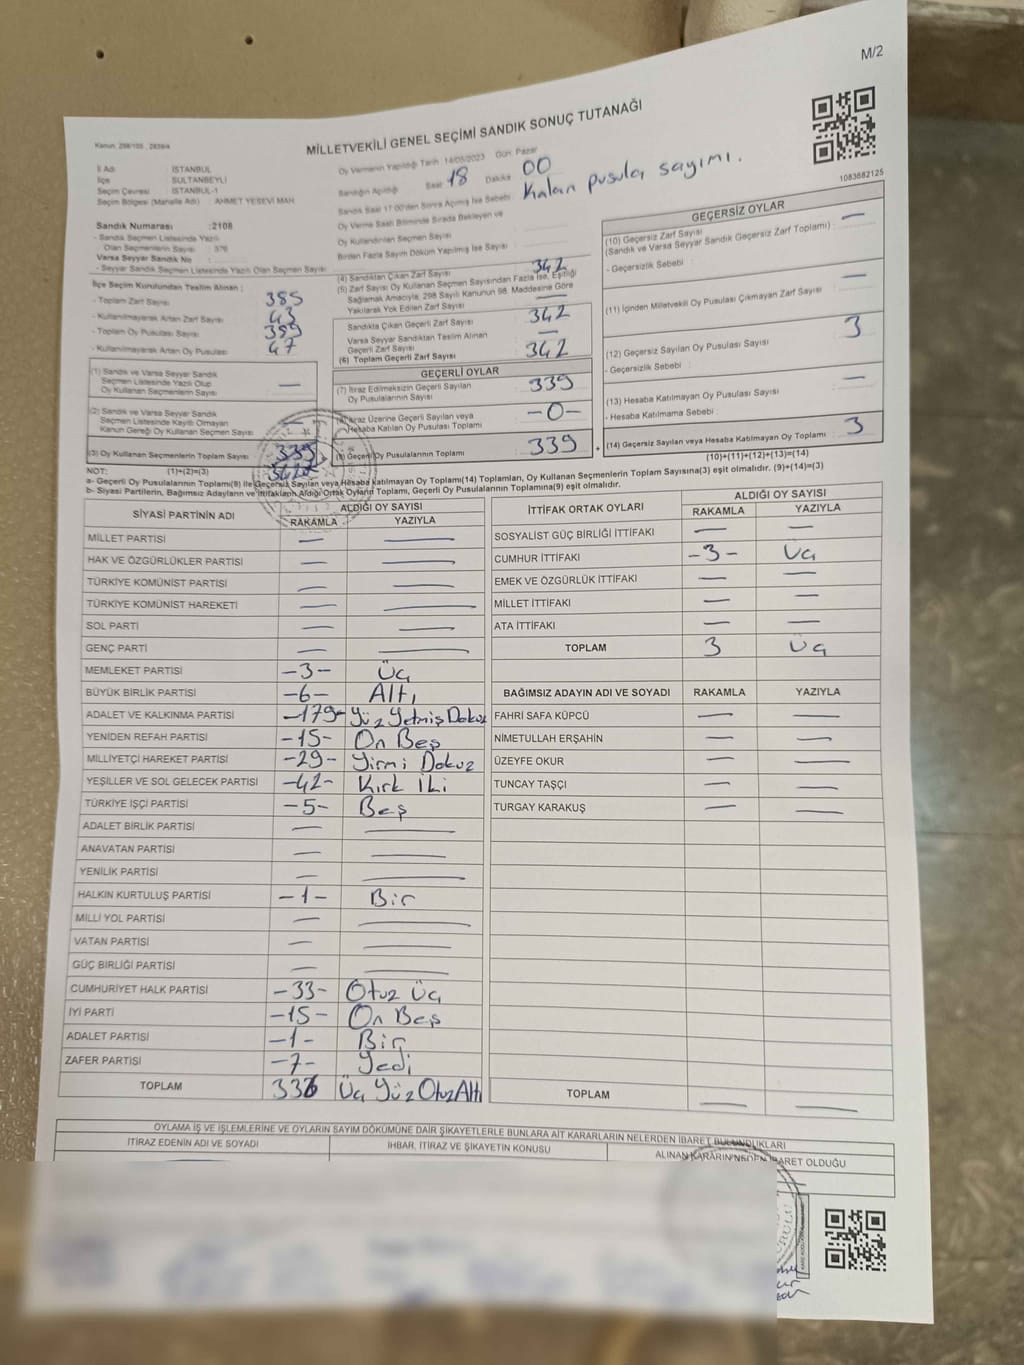 M/2
Kanun, 298/105 , 2839/4
MİLLETVEKİLİ GENEL SEÇİMİ SANDIK SONUÇ TUTANAĞI
1083882125
İl Adı İSTANBUL
İlçe SULTANBEYLİ
Seçim Çevresi İSTANBUL-1
Seçim Bölgesi (Mahalle Adı) : AHMET YESEVİ MAH.
Sandık Numarası :2108
- Sandık Seçmen Listesinde Yazılı
Olan Seçmenlerin Sayısı : 376
Varsa Seyyar Sandık No :
- Seyyar Sandık Seçmen Listesinde Yazılı Olan Seçmen Sayısı :
Oy Vermenin Yapıldığı Tarih :14/05/2023 Gün: Pazar
Sandığın Açıldığı Saat: 18 Dakika: 00
Sandık Saat 17:00'den Sonra Açılmış İse Sebebi: Kalan pusula sayımı.
Oy Verme Saati Bitiminde Sırada Bekleyen ve
Oy Kullandırılan Seçmen Sayısı :
Birden Fazla Sayım Döküm Yapılmış İse Sayısı :
İlçe Seçim Kurulundan Teslim Alınan ;
- Toplam Zarf Sayısı : 385
- Kullanılmayarak Artan Zarf Sayısı : 43
- Toplam Oy Pusulası Sayısı : 389
- Kullanılmayarak Artan Oy Pusulası : 47
(1) Sandık ve Varsa Seyyar Sandık
Seçmen Listesinde Yazılı Olup
Oy Kullanan Seçmenlerin Sayısı : —
(2) Sandık ve Varsa Seyyar Sandık
Seçmen Listesinde Kayıtlı Olmayan
Kanun Gereği Oy Kullanan Seçmen Sayısı :
(3) Oy Kullanan Seçmenlerin Toplam Sayısı : 339
342
(1)+(2)=(3)
(4) Sandıktan Çıkan Zarf Sayısı : 342
(5) Zarf Sayısı Oy Kullanan Seçmen Sayısından Fazla İse, Eşitliği
Sağlamak Amacıyla, 298 Sayılı Kanunun 98. Maddesine Göre
Yakılarak Yok Edilen Zarf Sayısı : —
Sandıkta Çıkan Geçerli Zarf Sayısı : 342
Varsa Seyyar Sandıktan Teslim Alınan
Geçerli Zarf Sayısı : —
(6) Toplam Geçerli Zarf Sayısı : 342
GEÇERLİ OYLAR
(7) İtiraz Edilmeksizin Geçerli Sayılan
Oy Pusulalarının Sayısı : 339
İtiraz Üzerine Geçerli Sayılan veya
Hesaba Katılan Oy Pusulası Toplamı : -0-
Geçerli Oy Pusulalarının Toplamı : 339 +
GEÇERSİZ OYLAR
(10) Geçersiz Zarf Sayısı
(Sandık ve Varsa Seyyar Sandık Geçersiz Zarf Toplamı) : —
- Geçersizlik Sebebi :
(11) İçinden Milletvekili Oy Pusulası Çıkmayan Zarf Sayısı : —
(12) Geçersiz Sayılan Oy Pusulası Sayısı : 3
- Geçersizlik Sebebi :
(13) Hesaba Katılmayan Oy Pusulası Sayısı : —
- Hesaba Katılmama Sebebi :
(14) Geçersiz Sayılan veya Hesaba Katılmayan Oy Toplamı : 3
(10)+(11)+(12)+(13)=(14)
NOT:
a- Geçerli Oy Pusulalarının Toplamı(9) ile Geçersiz Sayılan veya Hesaba katılmayan Oy Pusulası Toplamı(14) Toplamları, Oy Kullanan Seçmenlerin Toplam Sayısına(3) eşit olmalıdır. (9)+(14)=(3)
b- Siyasi Partilerin, Bağımsız Adayların ve İttifakların Aldığı Ortak Oyların Toplamı, Geçerli Oy Pusulalarının Toplamına(9) eşit olmalıdır.
SİYASİ PARTİNİN ADI ALDIĞI OY SAYISI
RAKAMLA YAZIYLA
MİLLET PARTİSİ — —
HAK VE ÖZGÜRLÜKLER PARTİSİ — —
TÜRKİYE KOMÜNİST PARTİSİ — —
TÜRKİYE KOMÜNİST HAREKETİ — —
SOL PARTİ — —
GENÇ PARTİ — —
MEMLEKET PARTİSİ -3- Üç
BÜYÜK BİRLİK PARTİSİ -6- Altı
ADALET VE KALKINMA PARTİSİ -179- Yüz Yetmiş Dokuz
YENİDEN REFAH PARTİSİ -15- On Beş
MİLLİYETÇİ HAREKET PARTİSİ -29- Yirmi Dokuz
YEŞİLLER VE SOL GELECEK PARTİSİ -42- Kırk İki
TÜRKİYE İŞÇİ PARTİSİ -5- Beş
ADALET BİRLİK PARTİSİ — —
ANAVATAN PARTİSİ — —
YENİLİK PARTİSİ — —
HALKIN KURTULUŞ PARTİSİ -1- Bir
MİLLİ YOL PARTİSİ — —
VATAN PARTİSİ — —
GÜÇ BİRLİĞİ PARTİSİ — —
CUMHURİYET HALK PARTİSİ -33- Otuz Üç
İYİ PARTİ -15- On Beş
ADALET PARTİSİ -1- Bir
ZAFER PARTİSİ -7- Yedi
TOPLAM 336 Üç Yüz Otuz Altı
İTTİFAK ORTAK OYLARI ALDIĞI OY SAYISI
RAKAMLA YAZIYLA
SOSYALİST GÜÇ BİRLİĞİ İTTİFAKI — —
CUMHUR İTTİFAKI -3- Üç
EMEK VE ÖZGÜRLÜK İTTİFAKI — —
MİLLET İTTİFAKI — —
ATA İTTİFAKI — —
TOPLAM 3 Üç
BAĞIMSIZ ADAYIN ADI VE SOYADI RAKAMLA YAZIYLA
FAHRİ SAFA KÜPCÜ — —
NİMETULLAH ERŞAHİN — —
ÜZEYFE OKUR — —
TUNCAY TAŞÇI — —
TURGAY KARAKUŞ — —
TOPLAM — —
OYLAMA İŞ VE İŞLEMLERİNE VE OYLARIN SAYIM DÖKÜMÜNE DAİR ŞİKAYETLERLE BUNLARA AİT KARARLARIN NELERDEN İBARET BULUNDUKLARI
İTİRAZ EDENİN ADI VE SOYADI İHBAR, İTİRAZ VE ŞİKAYETİN KONUSU ALINAN KARARIN NEDEN İBARET OLDUĞU